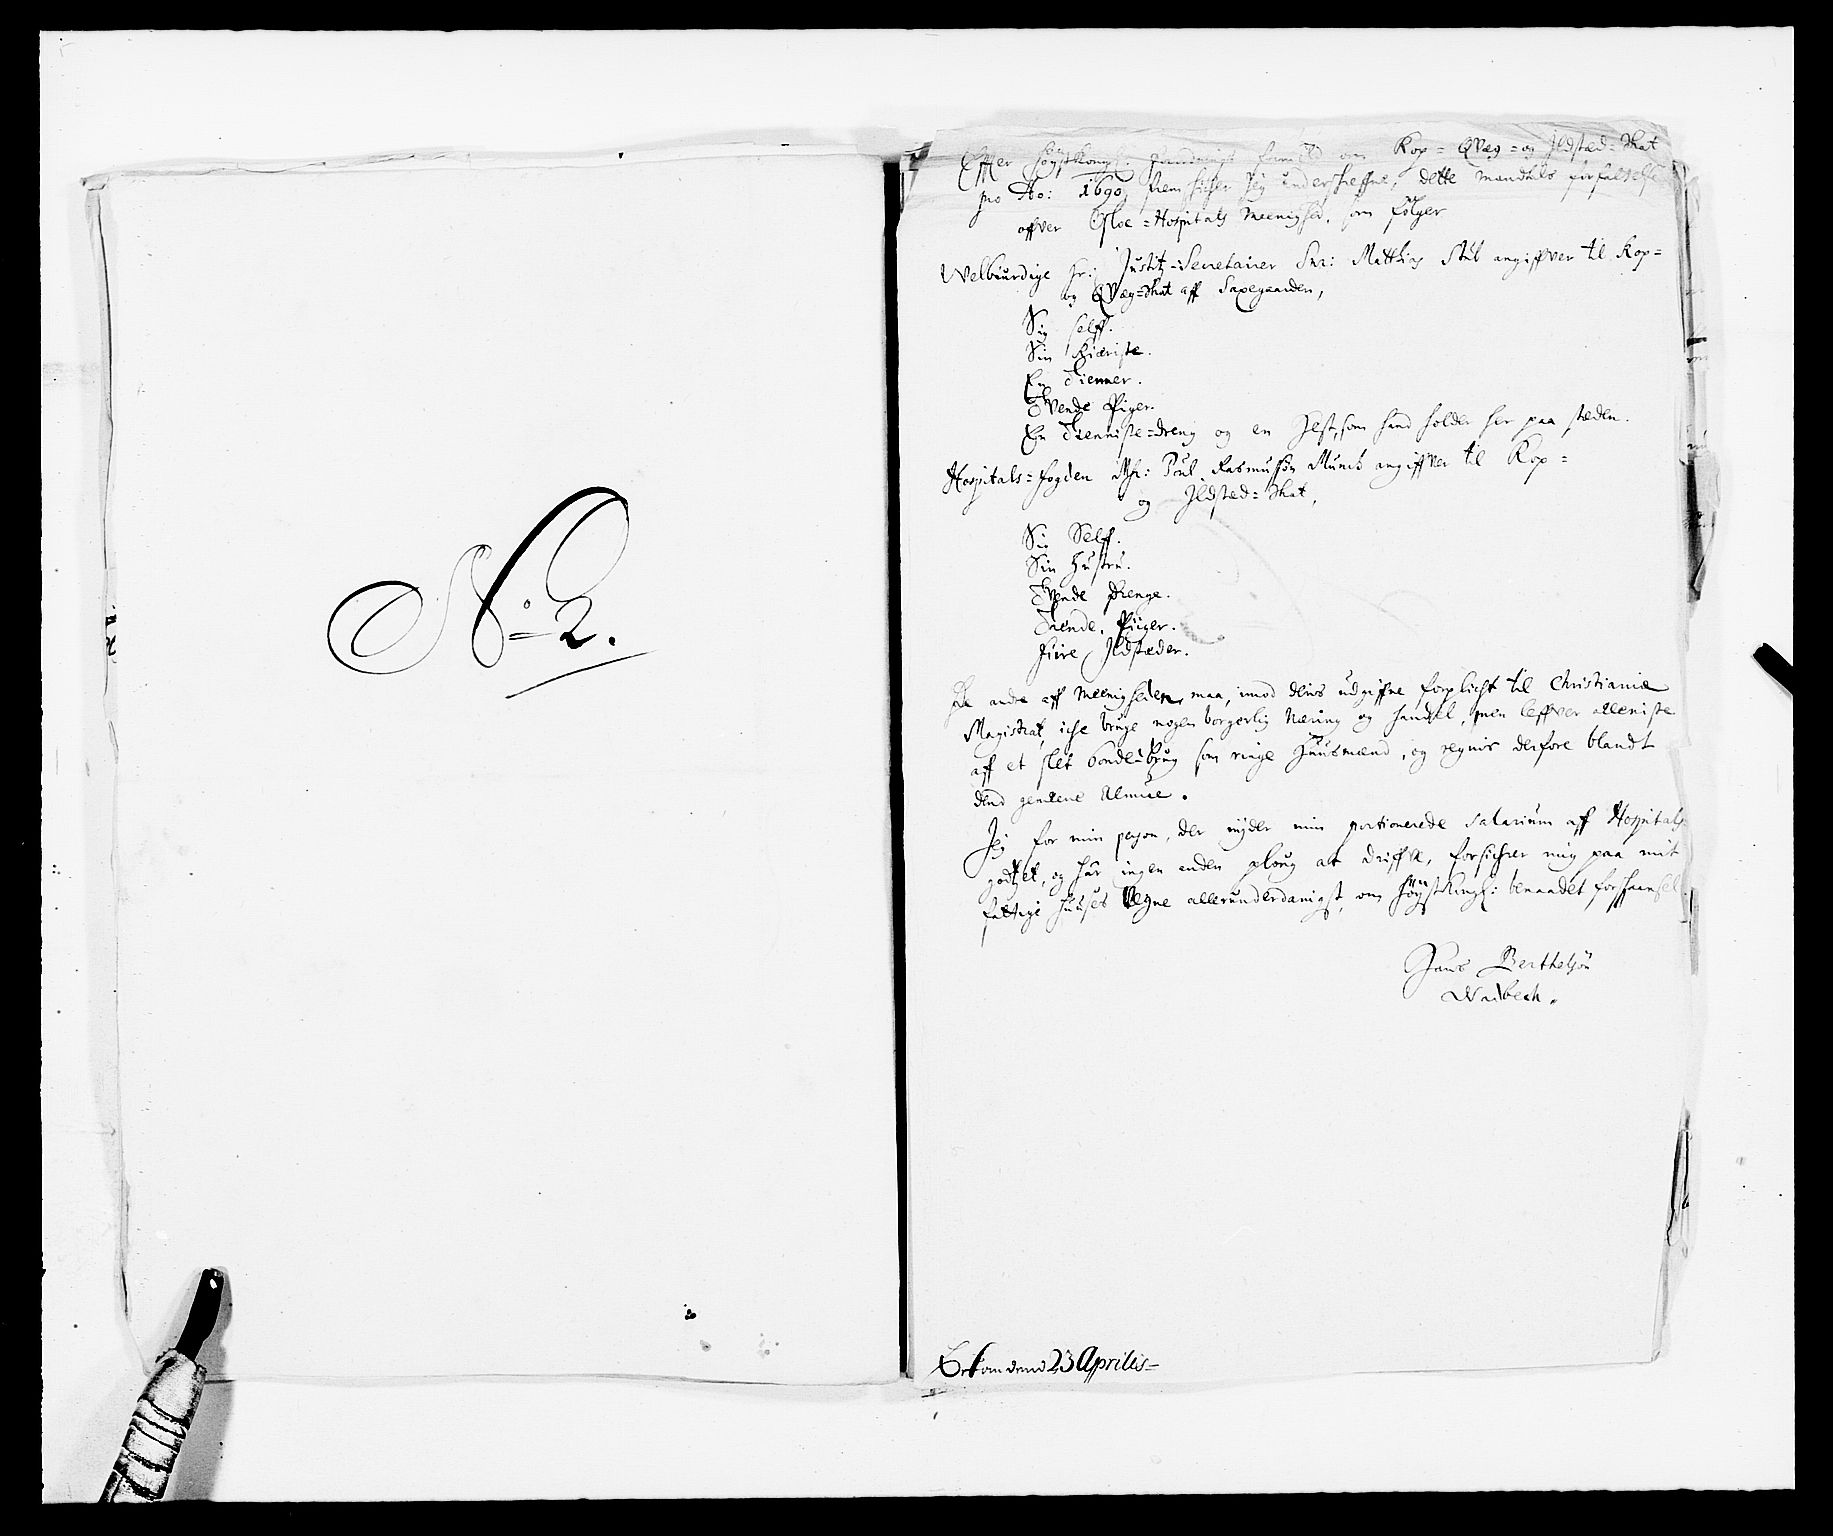 No 2.
Effter høystkongl: om Kop= Qvæg=og Jldsted=Skat
pro Ao: 1690, fremskicher Jeg underskreffne, dette mandtals forfattelse
offver Osloe=Hospitals Meenighed, som følger
Welbiurdige Hr: Justitz=Secretairer Snr: Matthias Stub angiffver til Kop=
og Qvæg=Skat aff Saxegaarden,
Sig selff.
Sin Kiæriste.
En Tienner.
Tvende Piger.
En Tienniste=dreng og en Hest, som hand holder her paa stæden.
Hospitals=fogden Mhr: Poul Rasmussøn Munch angiffver til Kop=
og Jldsted=Skat,
Sig Self.
Sin Hustru.
Tvende Drenge.
Trende Piiger.
Fiire Jldstæder.
De andre aff Meenigheden, maa, imod deris udgiffne forplicht til Christianiæ
Magistrat, iche bruge nogen borgerlig Næring og handel, men leffver alleniste
aff et slet bonde=brug som ringe Huusmænd, og regnis derfore blandt
dend gemeene Almue.
Jeg for min person, der nyder min portionerede salarium aff Hospitals
godtzet, og har ingen anden ploug at driffve, forsichrer mig paa mit
fattige Huuses Vegne allerunderdanigst, om høystkongl: benaadet forskaansel.
Hans Berthelsøn
Wadbech.
Bekom dend 23 Aprilis=